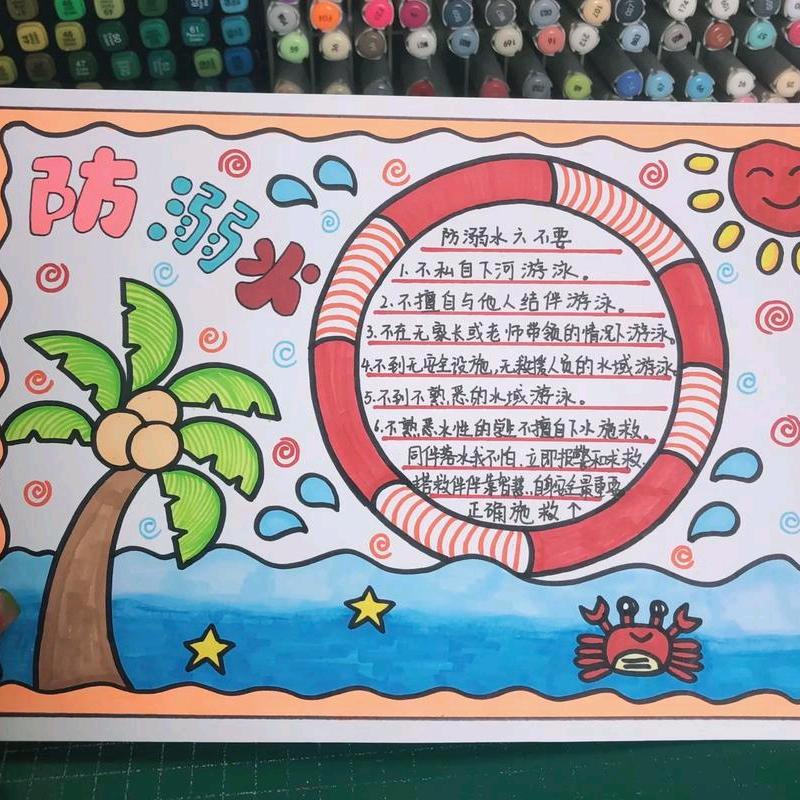 防溺水
防溺水六不要
1.不私自下河游泳。
2.不擅自与他人结伴游泳。
3.不在无家长或老师带领的情况下游泳。
4.不到无安全设施,无救援人员的水域游泳
5.不到不熟悉的水域游泳。
6.不熟悉水性的 不擅自下水施救。
同伴落水我不怕,立即报警和求救,
救伴伴靠智慧,自身安全最重要
正确施救↑